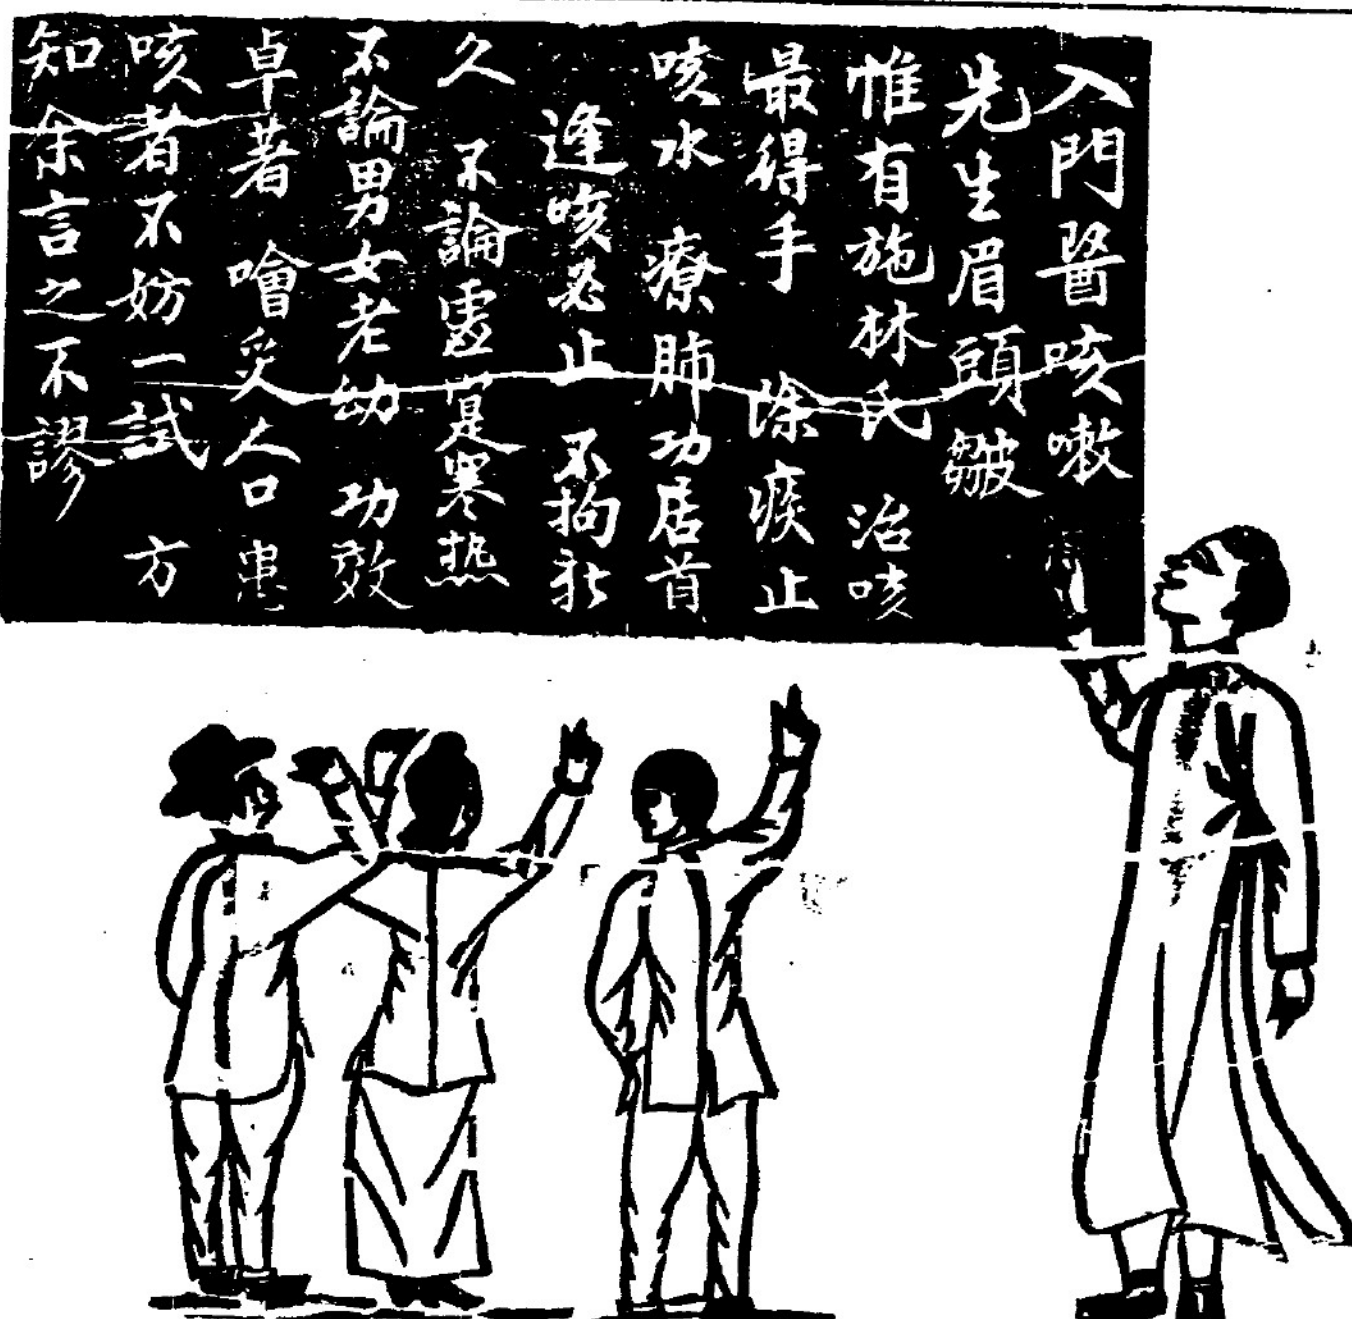 入門醫咳嗽
先生眉頭皺
惟有施林氏 治咳
最得手 除痰止
咳水 療肺功居首
逢咳必止 不拘新
久 不論虛寔寒熱
不論男女老幼 功效
卓著 噲受人口患
咳者不妨一試 方
知余言之不謬